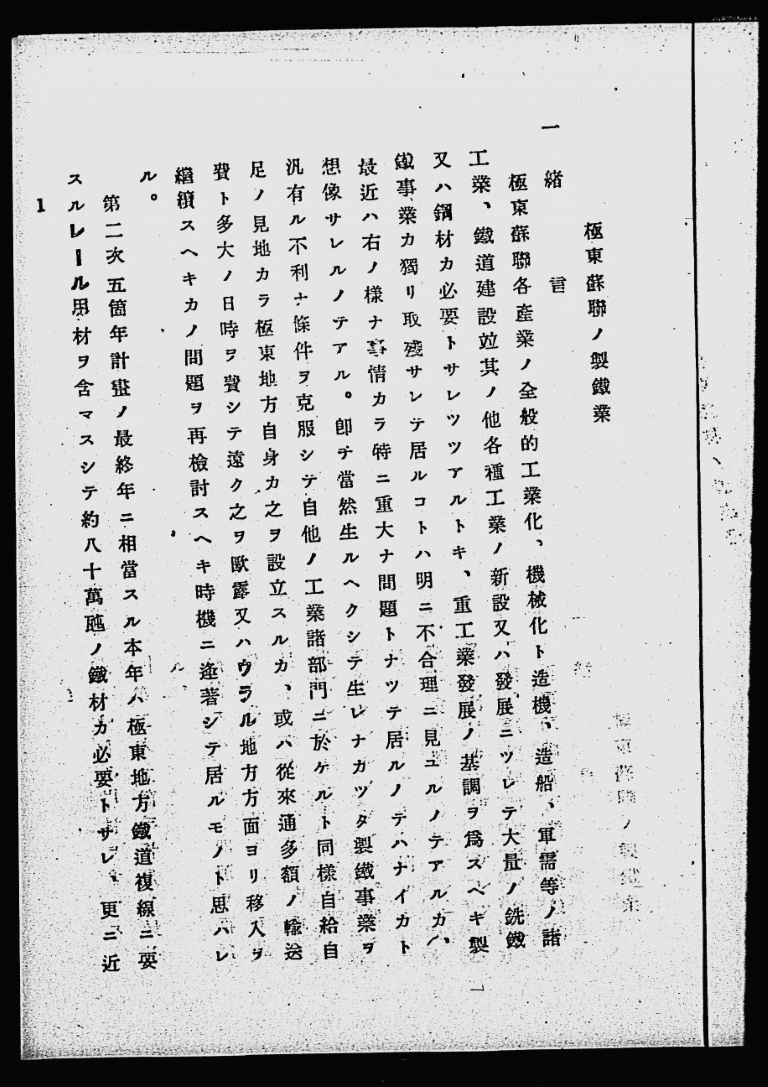 極東蘇聯ノ製鐵業
一　緒　　言
極東蘇聯各産業ノ全般的工業化、機械化ト造機、造船、軍需等ノ諸
工業、鐵道建設竝其ノ他各種工業ノ新設又ハ發展ニツレテ大量ノ銑鐵
又ハ鋼材カ必要トサレツツアルトキ、重工業發展ノ基調ヲ爲スヘキ製
鐵事業カ獨リ取殘サレテ居ルコトハ明ニ不合理ニ見ユルノテアルカ、
最近ハ右ノ様ナ事情カラ特ニ重大ナ問題トナツテ居ルノテハナイカト
想像サレルノテアル。卽チ當然生ルヘクシテ生レナカツタ製鐵事業ヲ
汎有ル不利ナ條件ヲ克服シテ自他ノ工業諸部門ニ於ケルト同様自給自
足ノ見地カラ極東地方自身カ之ヲ設立スルカ、或ハ從來通多額ノ輸送
費ト多大ノ日時ヲ費シテ遠ク之ヲ歐露又ハウラル地方方面ヨリ移入ヲ
繼續スヘキカノ問題ヲ再檢討スヘキ時機ニ逢著シテ居ルモノト思ハレ
ル。
第二次五箇年計畫ノ最終年ニ相當スル本年ハ極東地方鐵道複線ニ要
スルレール思材ヲ含マスシテ約八十萬瓲ノ鐵材カ必要トサレ、更ニ近
1